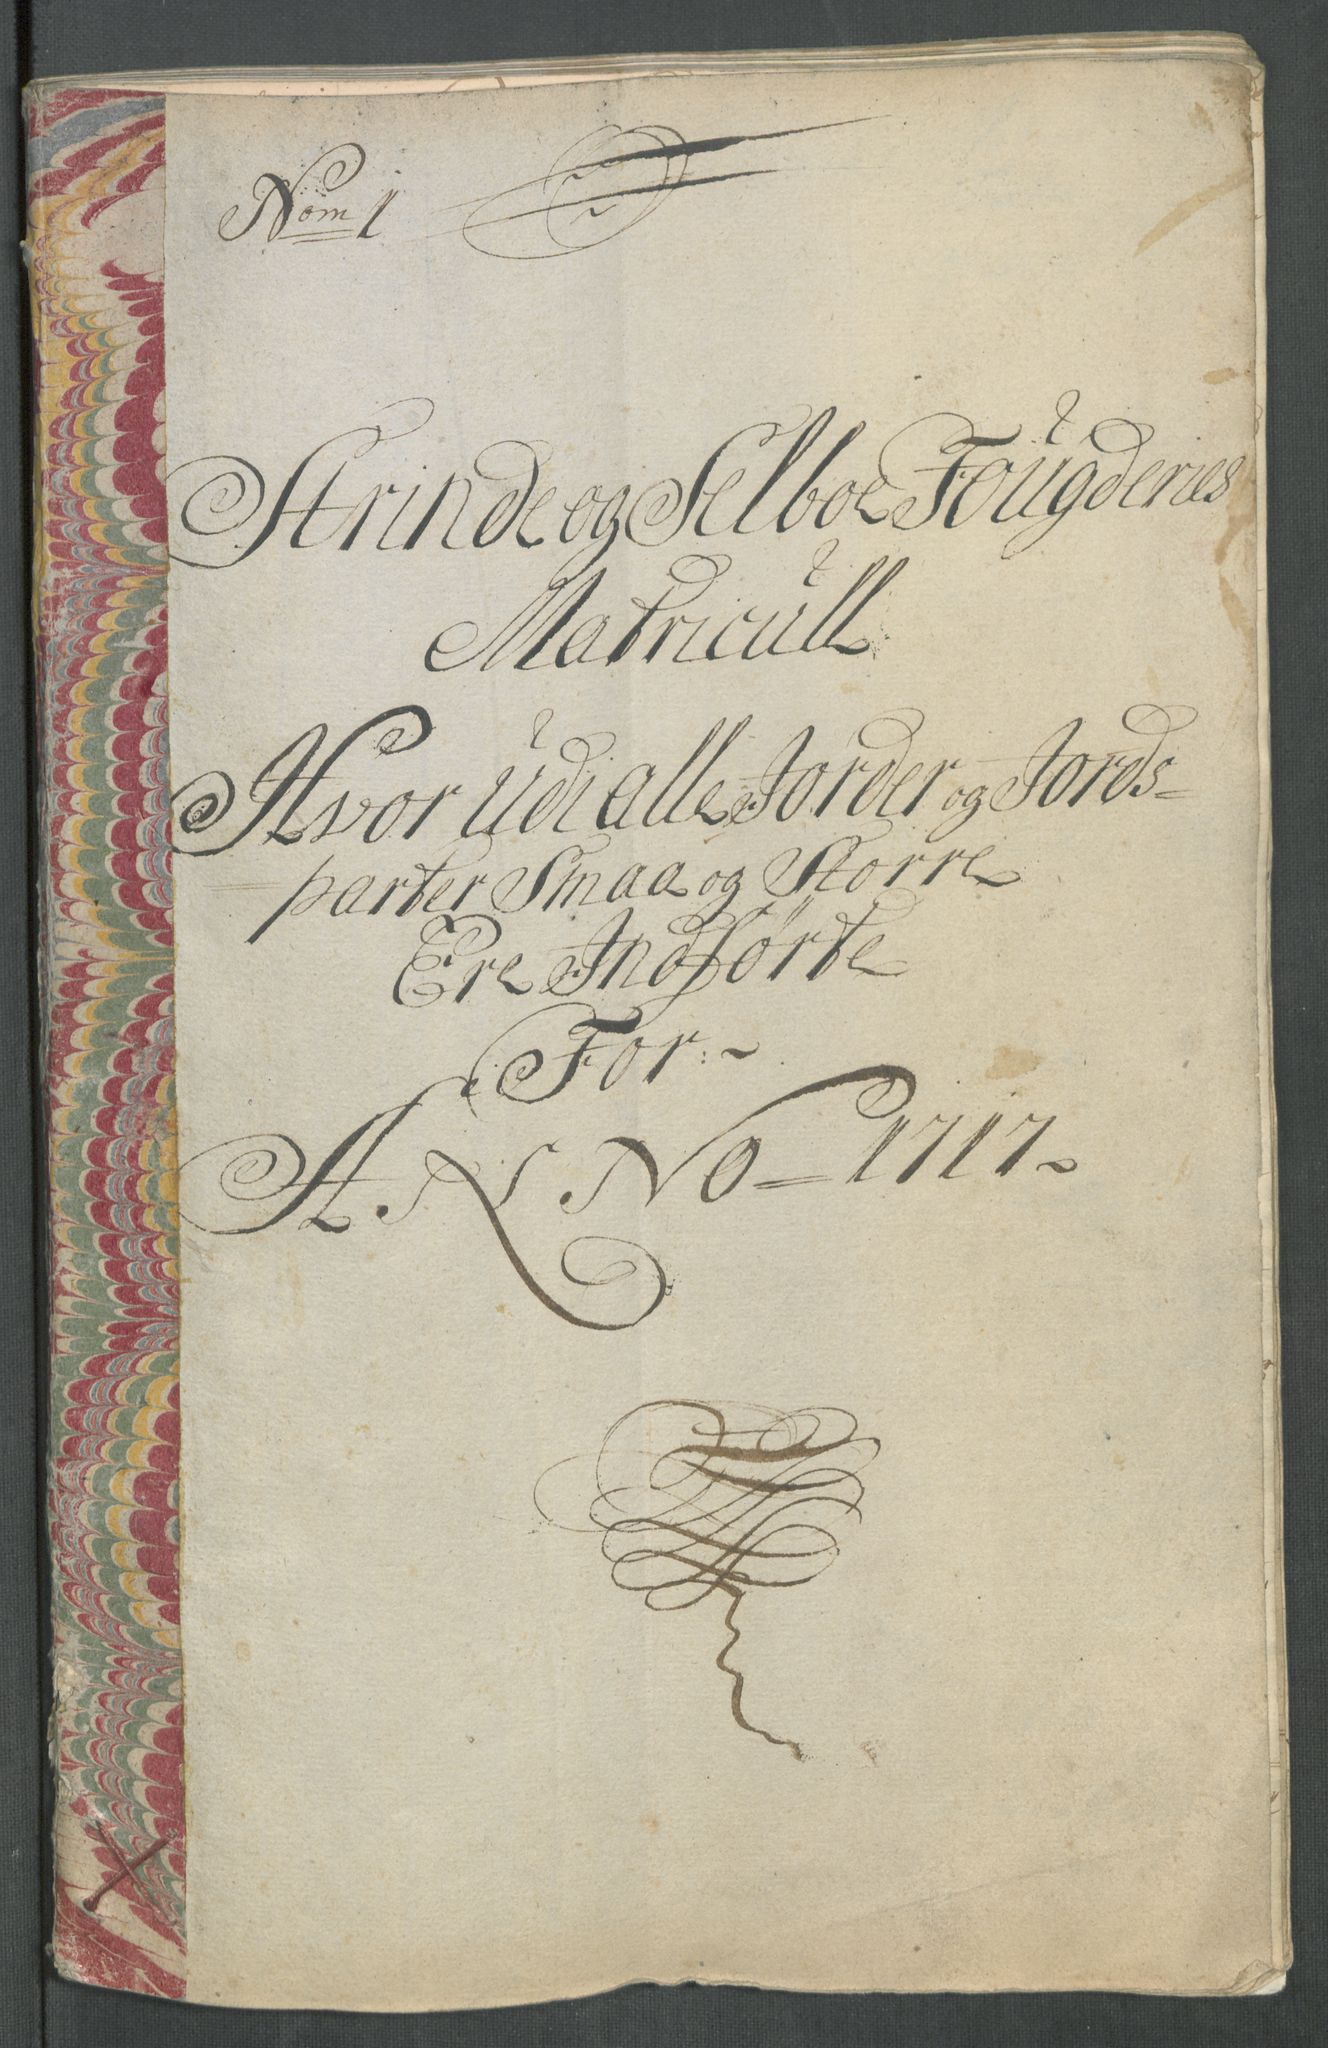 Nom 1
Strinde og Selboe Foügderies
Matricüll
Hvor Üdi alle Jorder og Jords=
parter Smaa og Storre
Ere Indførte
For:~
ANNO = 1717~